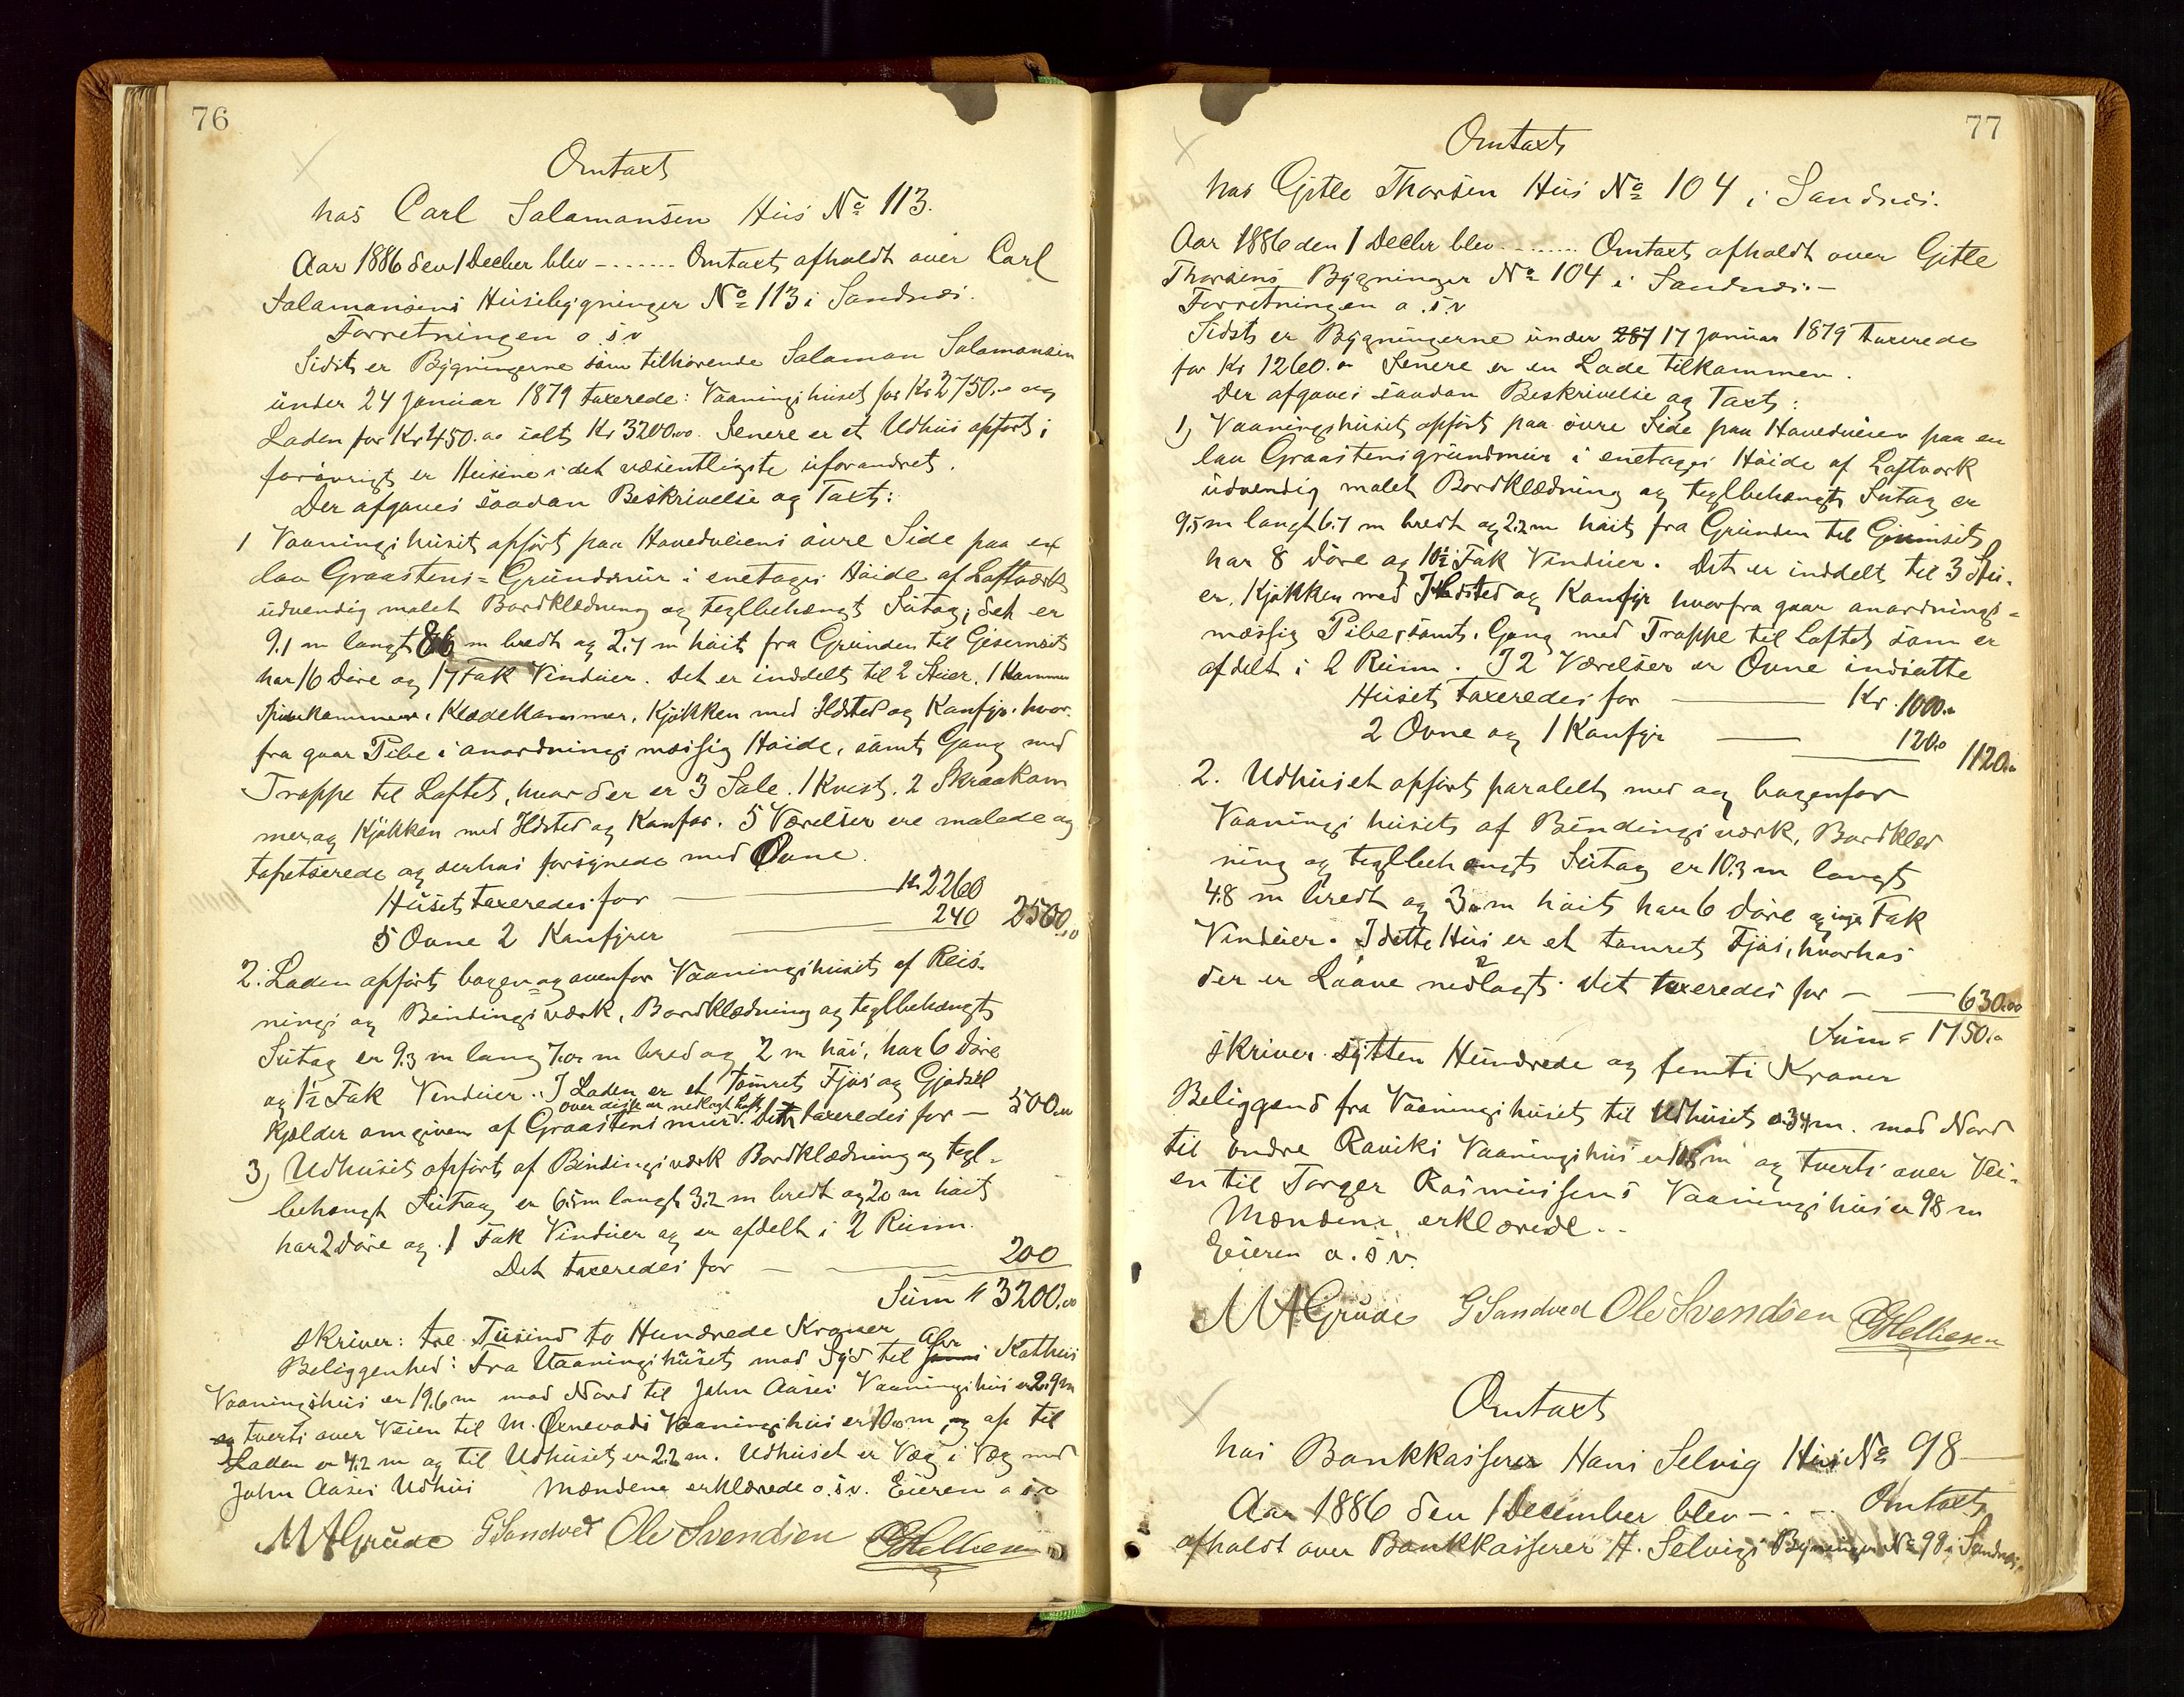 76
Omtaxt
hos Carl Salamonsen Hus No 113.
Aar 1886 den 1 Decber blev - ....... Omtaxt afholdt over Carl
Salamonsens Husebygninger No 113 i Sandnæs.
Forretningen o. s. v
Sidst er Bygningerne som tilhørende Salamon Salamonsen
under 24 Januar 1879 taxerede: Vaaningshuset for Kr 2750.00 og
Laden for Kr 450.00 ialt Kr 3200.00. Senere er et Udhus opført i
forøvrigt er Husene i det væsentligste uforandret.
Der afgaves saadan Beskrivelse og Taxt:
1 Vaaningshuset opført paa Hovedveiens øvre Side paa en
lav Graastens=Grundmur i enetages Høide af Laftværk
udvendig malet Bordklædning og teglbehængt Sutag; det er
9.1 m langt 86 m bredt og 2.7 m høit fra Grunden til Gesemset
har 16 Døre og 17 Fak Vinduer. Det er inddelt til 2 Stuer, 1 Kammer
Spisekammer, Klædekammer, Kjøkken med Ildsted og Komfyr, hvor-
fra gaar Pibe i anordningsmæssig Høide, samt Gang med
Trappe til Loftet, hvor der er 3 Sale. 1 Kvist. 2 Skraakam
mer og Kjøkken med Ildsted og Komfor. 5 Værelser ere malede og
tapetserede og derhos forsynede med Ovne.
Huset taxeredes for — Kr 2260
5 Ovne 2 Komfyrer — 240 2500.00
2. Laden opført bagen og ovenfor Vaaningshuset af Reis-
nings og Bindingsværk, Bordklædning og teglbehængt
Sutag er 9.3 m lang 7.0 m bred og 2 m høi, har 6 Døre
og 1½ Fak Vinduer. I Laden er et tømret Fjøs og Gjødsel
over disse er nedlagt Loft
Kjælder omgiven af Graastensmur. Det taxeredes for — 500.00
3) Udhuset opført af Bindingsværk Bordklædning og tegl-
behængt Sutag er 6.5 m langt 3.2 m bredt og 2.0 m høit
har 2 Døre og 1 Fak Vinduer og er afdelt i 2 Rum.
Det taxeredes for — 200
Sum " 3200.00
skriver: tre Tusind to Hundrede Kroner
Beliggenhed: Fra Vaaningshuset mod Syd til Kathus
Vaaningshus er 19.6 m mod Nord til John Aases Vaaningshus er 2.9 m
og tverts over Veien til M. Ørnevads Vaaningshus er 10.0 m og op til
Laden er 4.2 m og til Udhuset er 2.2 m. Udhuset er Væg i Væg med
John Aases Udhus Mændene erklærede o.s.v. Eieren o s v
MAGrude GSandved Ole Svendsen GHelliesen
77
Omtaxt
hos Gitle Thorsen Hus No 104 i Sandnæs.
Aar 1886 den 1 Decbr blev ........ Omtaxt afholdt over Gitle
Thorsens Bygninger No 104 i Sandnæs. -
Forretningen o. s. v
Sidst er Bygningerne under 287 17 Januar 1879 taxerede
for Kr 1260.00 Senere er en Lade tilkommen.
Der afgaves saadan Beskrivelse og Taxt:
1) Vaaningshuset opført paa øvre Side paa Hovedveien paa en
lav Graastensgrundmur i enetages Høide af Laftværk
udvendig malet Bordklædning og teglbehængt Sutag er
9.5 m langt 6.7 m bredt og 2.2 m høit fra Grunden til Gesimset
har 8 Døre og 10½ Fak Vinduer. Det er inddelt til 3 Stu-
er, Kjøkken med Ildsted og Komfyr hvorfra gaar anordnings-
mæssig Piber samt. Gang med Trappe til Loftet som er
afdelt i 2 Rum. I 2 Værelser er Ovne indsatte
Huset taxeredes for — Kr. 1000.00
2 Ovne og 1 Komfyr — 120.0 1120.00
2. Udhuset opført paralelt med og bagenfor
Vaaningshuset af Bindingsværk, Bordklæd
ning og teglbehængt Sutag er 10.3 m langt
4.8 m bredt og 3.0 m høit har 6 Døre og Fak
Vinduer. I dette Hus er et tømret Fjøs, hvorhos
der er Laave nedlagt. Det taxeredes for — — 630.00
Sum = 1750.00
skriver sytten Hundrede og femti Kroner
Beliggend fra Vaaningshuset til Udhuset er 34 m. mod Nord
til Endre Raviks Vaaningshus er m og tverts over Vei-
en til Torger Rasmussens Vaaningshus er 98 m
Mændene erklærede..
Eieren o. s. v.
MAGrude GSandved Ole Svendsen GHelliesen
Omtaxt
hos Bankkasserer Hans Selvig Hus No 98
Aar 1886 den 1 December blev - . . . Omtaxt
afholdt over Bankkasserer H. Selvigs Bygninger No 98 i Sandnæs.